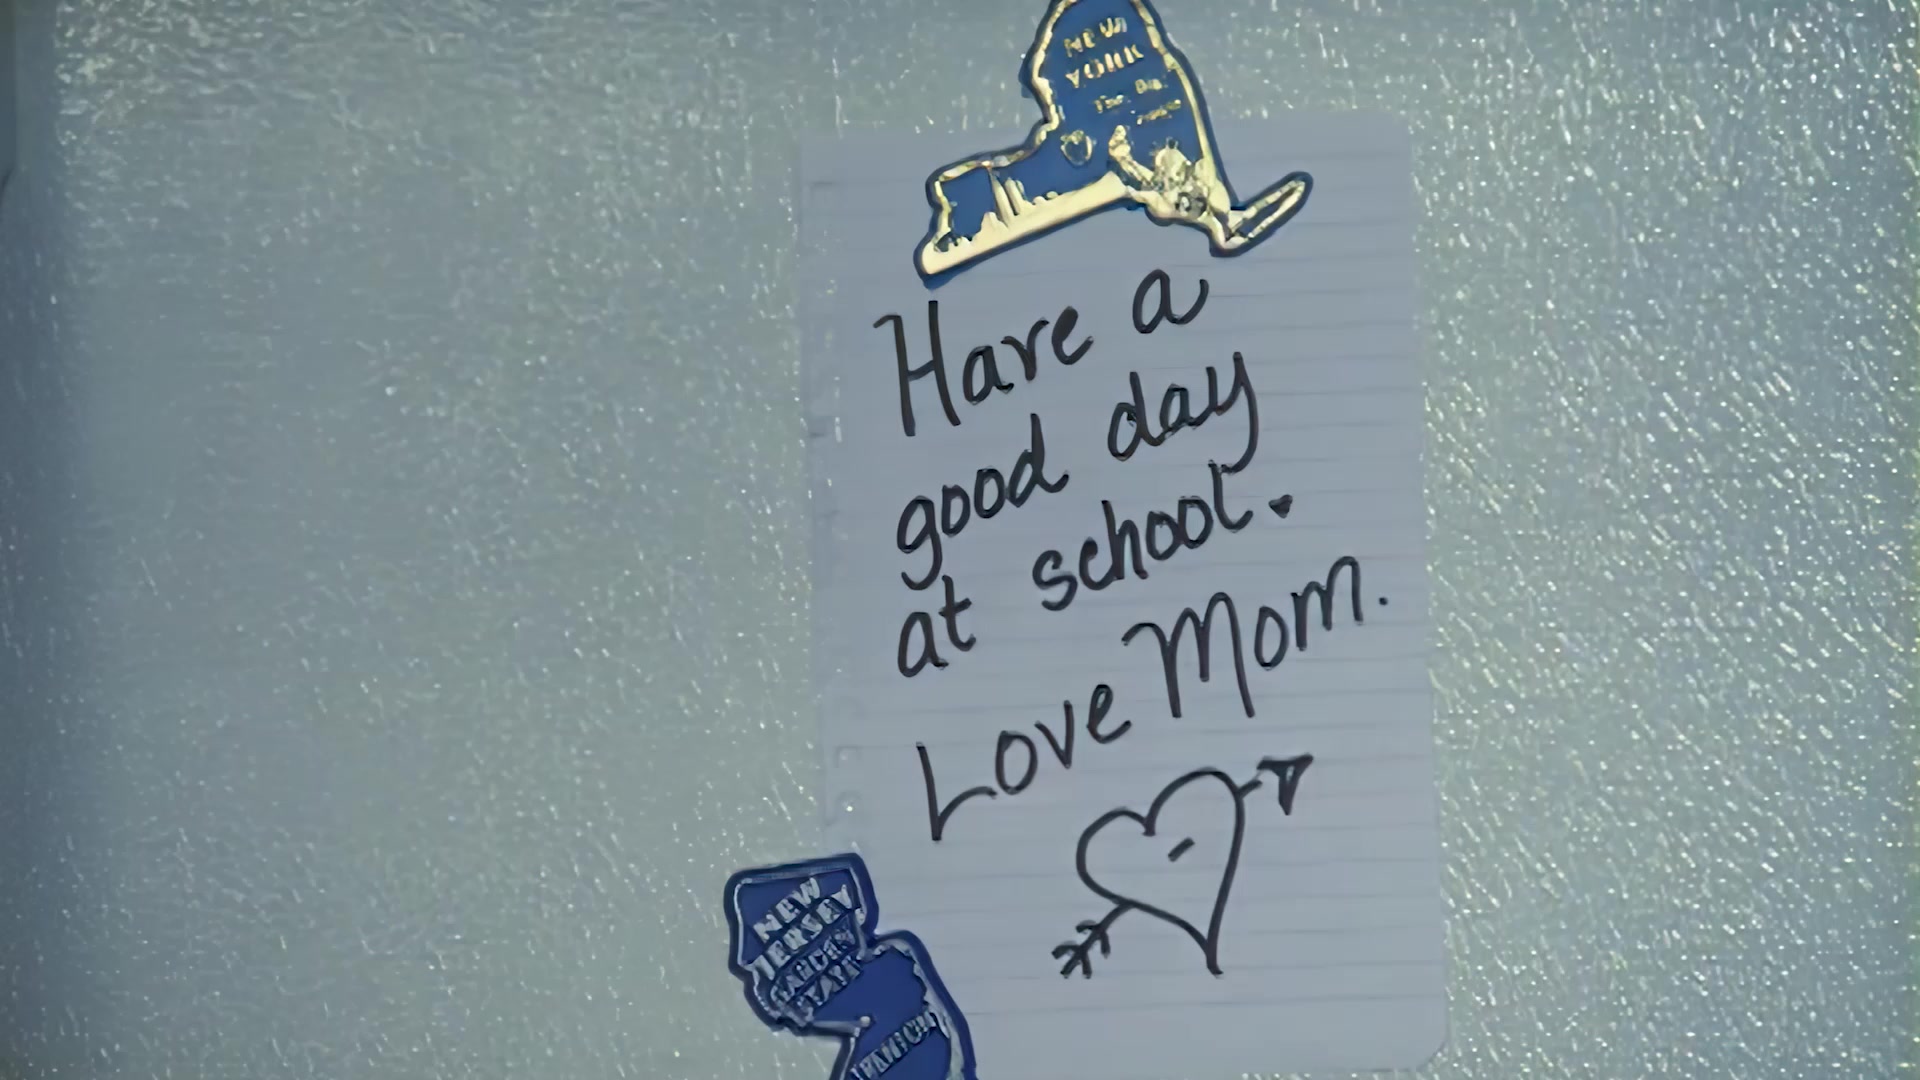 NEW
YORK
Have a
good day
at school.
Love Mom.
NEW
JERSEY
GARDEN
STATE